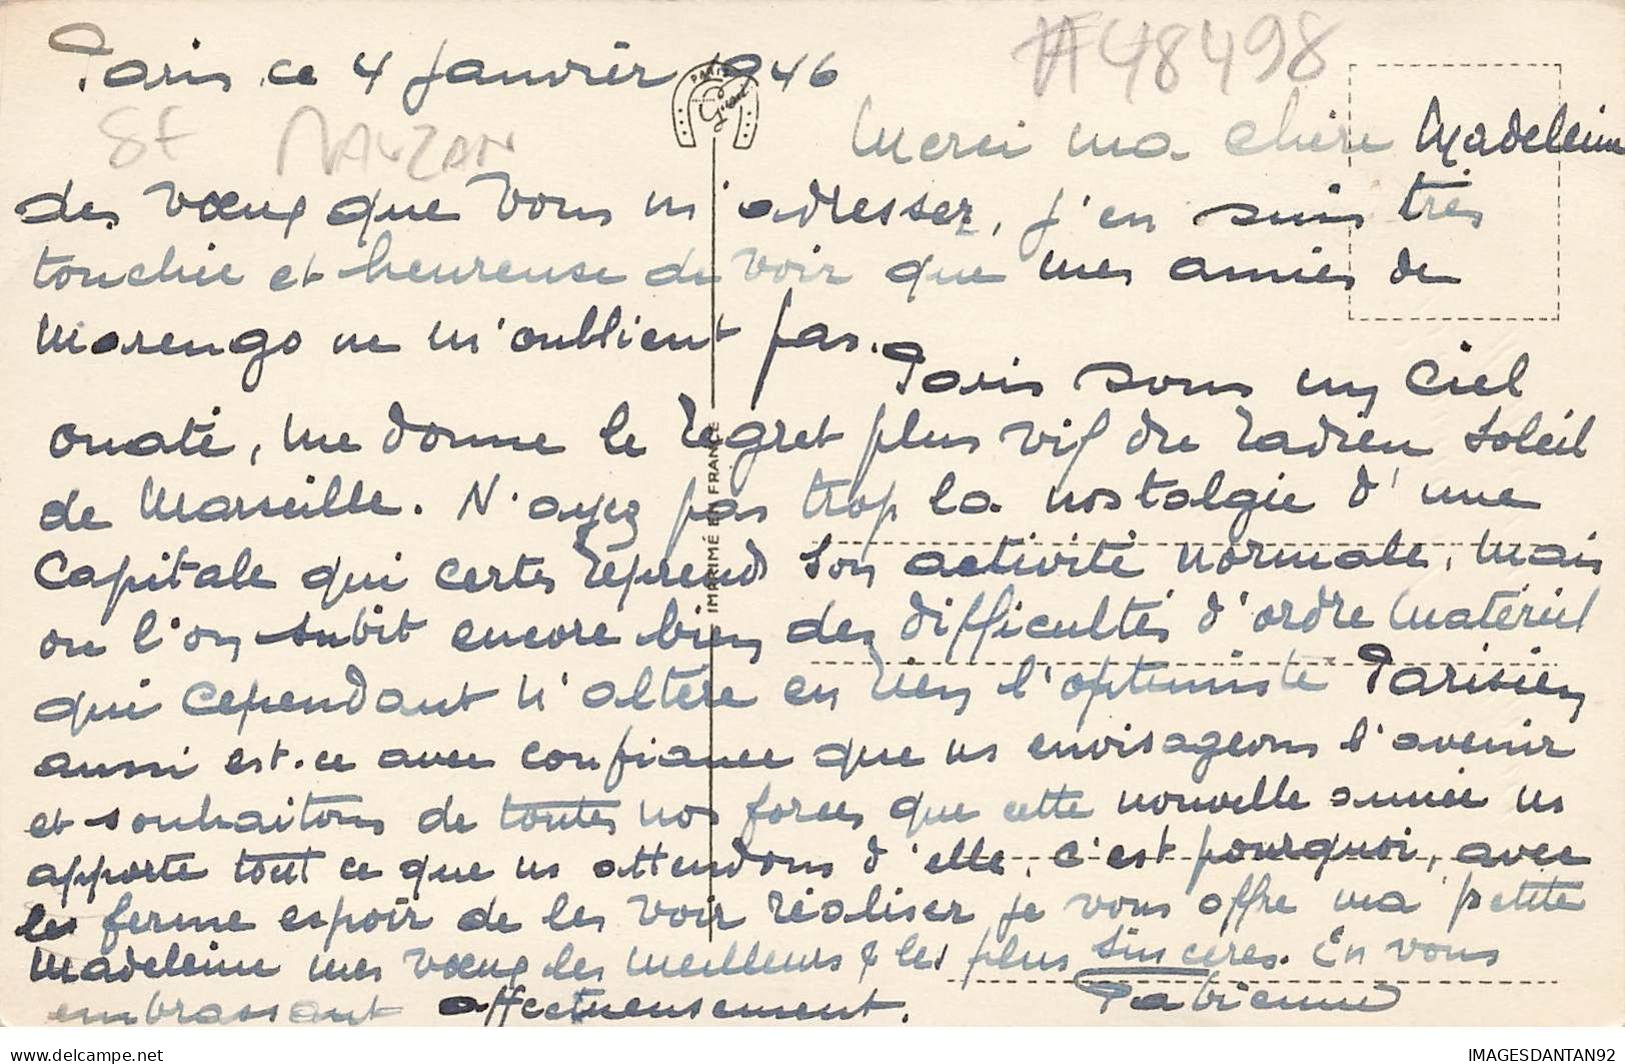 Paris ce 4 Janvier 1946
#48498
PARIS
Guy
ST NAUZAN
Merci ma chère Madeleine
des vœux que vous m'adressez, j'en suis très
touchée et heureuse de voir que mes amies de
Marengo ne m'oublient pas.
Paris sous un Ciel
ouaté, me donne le regret plus vif du radieu soleil
de Marseille. N'ayez pas trop la nostalgie d'une
Capitale qui certes reprend son activité normale, mais
ou l'on subit encore bien des difficultés d'ordre matériel
qui cependant n'altère en rien l'optimiste Parisien
aussi est-ce avec confiance que ns envisageons l'avenir
et souhaitons de toutes nos forces que cette nouvelle année ns
apporte tout ce que ns attendons d'elle, c'est pourquoi, avec
le ferme espoir de les voir réaliser je vous offre ma petite
Madeleine mes vœux les meilleurs & les plus sincères. En vous
embrassant affectueusement. Fabienne
IMPRIMÉ EN FRANCE
delcampe.net
IMAGESDANTAN92